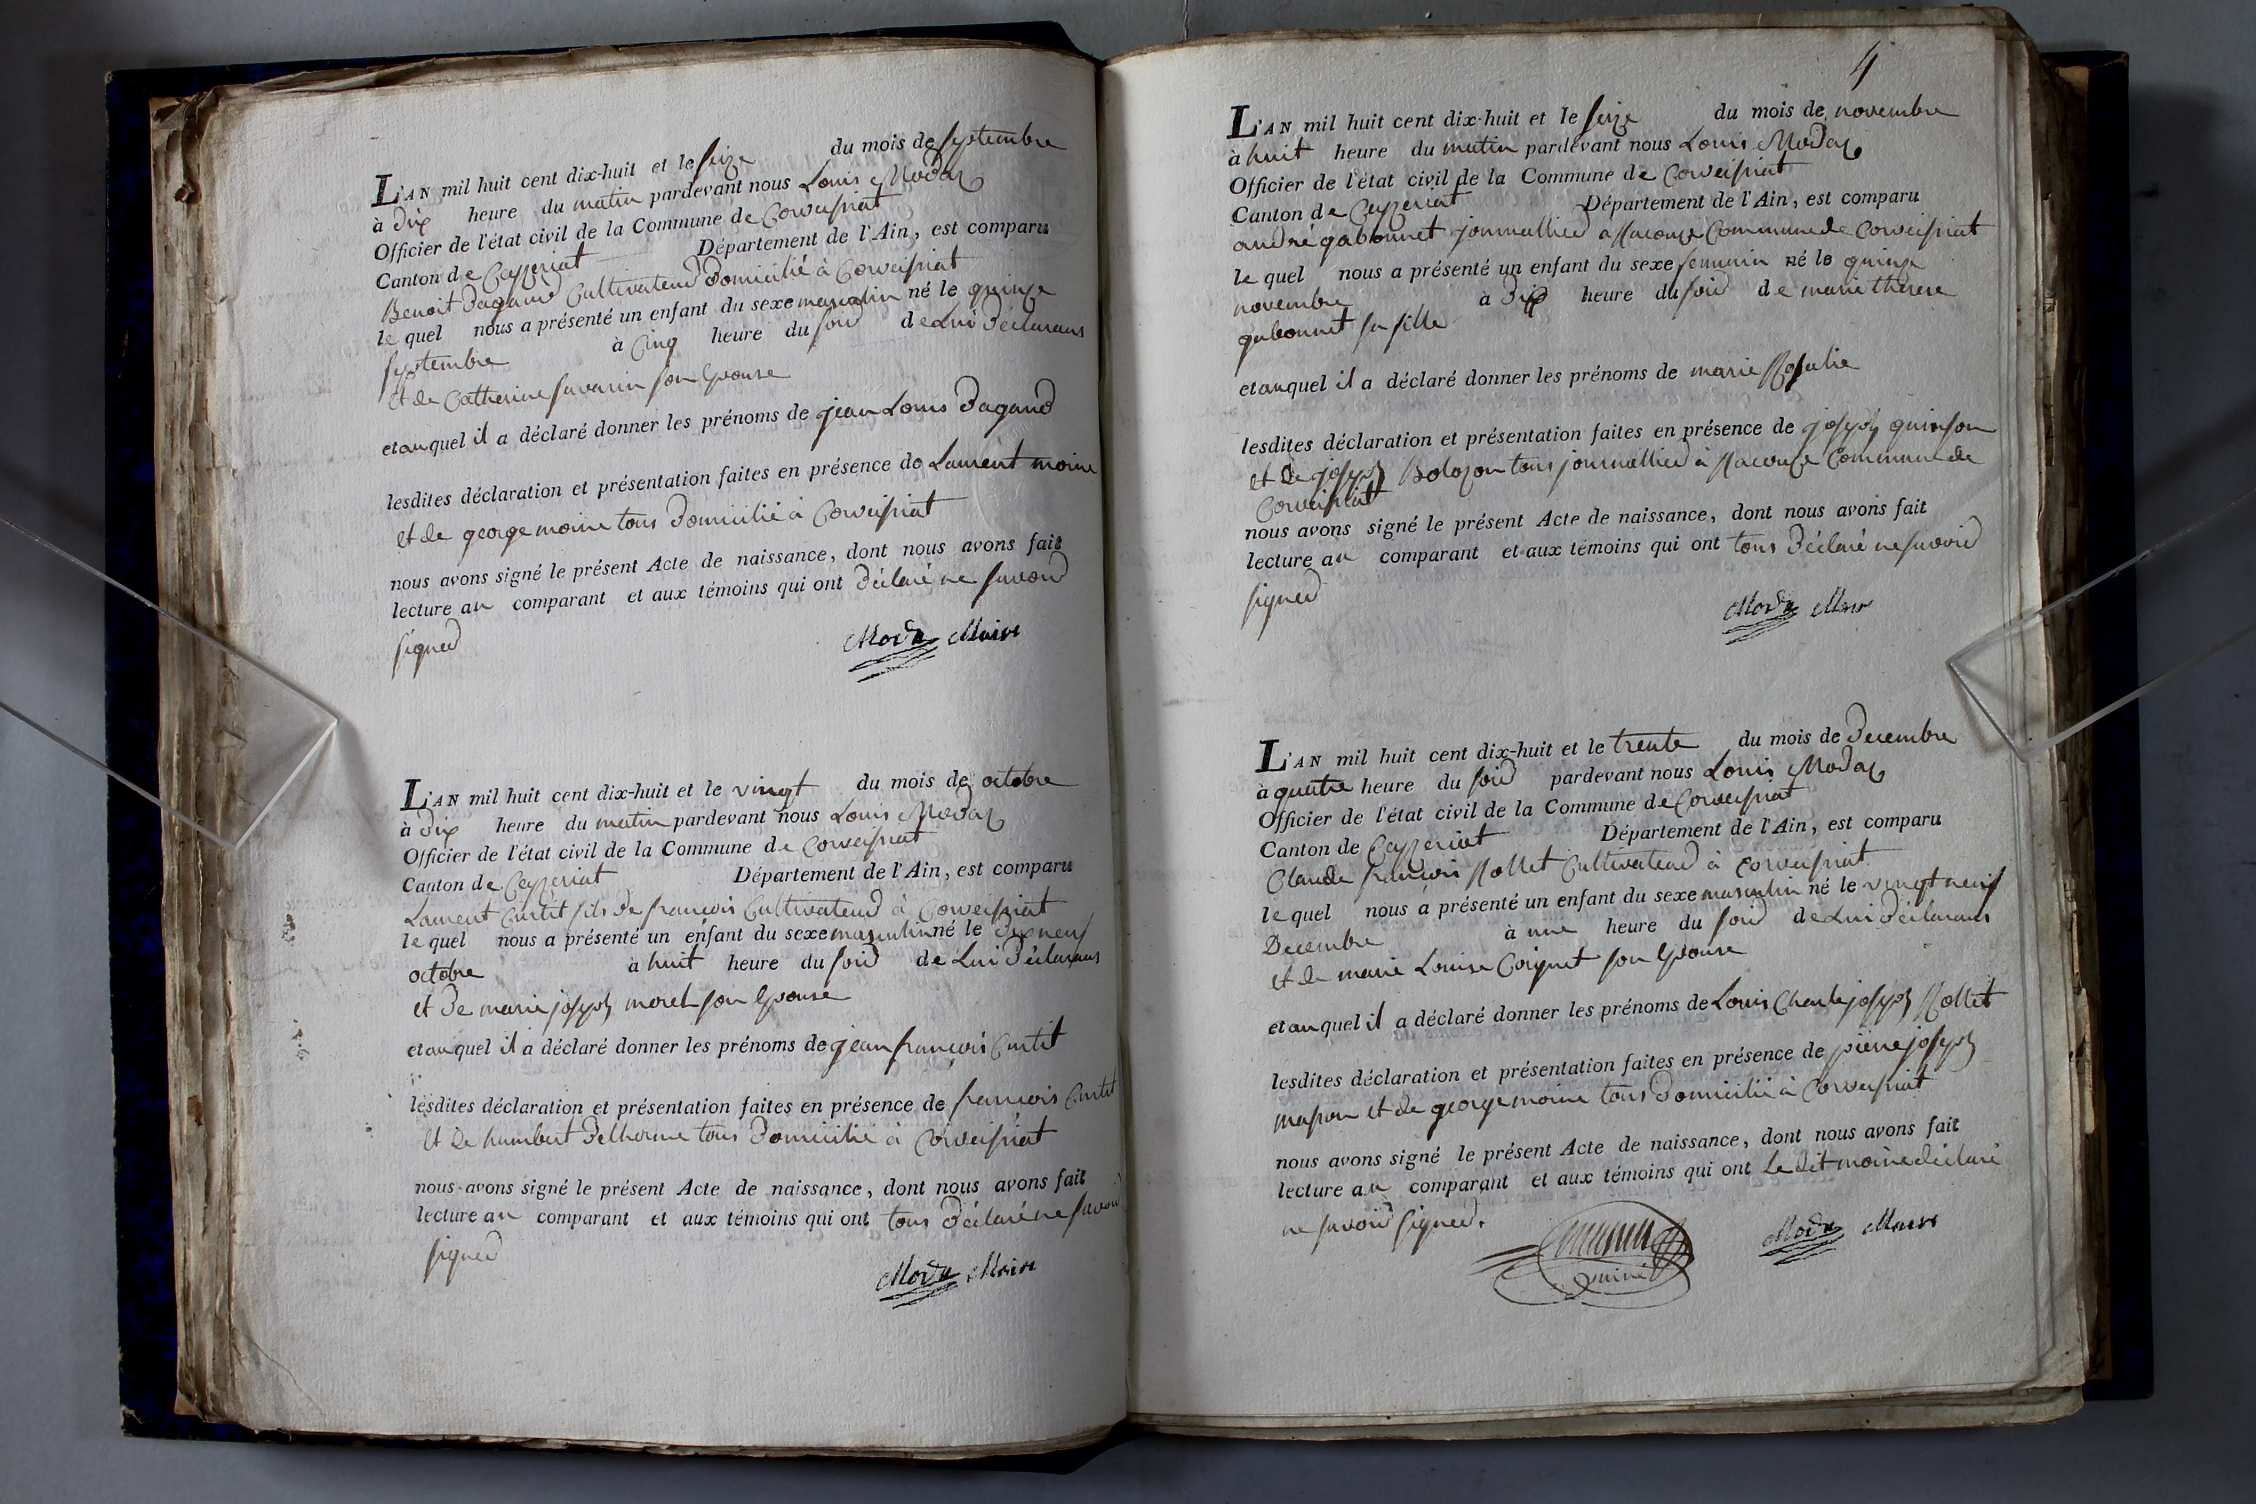 L'AN mil huit cent dix-huit et le seize du mois de septembre
à dix heure du matin pardevant nous Louis Modas
Officier de l'état civil de la Commune de Corveissiat
Canton de Ceyzeriat Département de l'Ain, est comparu
Benoit Dagand Cultivateur Domicilié à Corveissiat
le quel nous a présenté un enfant du sexe masculin né le quinze
septembre à Cinq heure du soir de Lui Déclarans
et de Catherine savarin son Epouse
et auquel il a déclaré donner les prénoms de jean Louis Dagand
lesdites déclaration et présentation faites en présence de Laurent moine
et de george moine tous Domicilié à Corveissiat
nous avons signé le présent Acte de naissance, dont nous avons fait
lecture au comparant et aux témoins qui ont Déclaré ne savoir
signer
Maire
L'AN mil huit cent dix-huit et le vingt du mois de octobre
à dix heure du matin pardevant nous Louis Modas
Officier de l'état civil de la Commune de Corveissiat
Canton de Ceyzeriat Département de l'Ain, est comparu
Laurent Curtit fils de françois Cultivateur à Corveissiat
le quel nous a présenté un enfant du sexe masculin né le Dixneuf
octobre à huit heure du soir de Lui Déclarans
et De marie joseph morel son Epouse
et auquel il a déclaré donner les prénoms de jean françois Curtit
lesdites déclaration et présentation faites en présence de françois Curtit
et De humbert Delhorme tous Domicilié à Corveissiat
nous avons signé le présent Acte de naissance, dont nous avons fait
lecture au comparant et aux témoins qui ont tous Déclaré ne savoir
signer
Maire
4
L'AN mil huit cent dix-huit et le seize du mois de novembre
à huit heure du matin pardevant nous Louis Modas
Officier de l'état civil de la Commune de Corveissiat
Canton de Ceyzeriat Département de l'Ain, est comparu
andré gabonnet journallier a Racouze Commune de Corveissiat
le quel nous a présenté un enfant du sexe feminin né le quinze
novembre à Dix heure du soir de marie therese
gabonnet sa fille
et auquel il a déclaré donner les prénoms de marie Rosalie
lesdites déclaration et présentation faites en présence de joseph quinson
et De joseph Bolozon tous journallier à Racouze Commune de
Corveissiat
nous avons signé le présent Acte de naissance, dont nous avons fait
lecture au comparant et aux témoins qui ont tous Déclaré ne savoir
signer
Maire
L'AN mil huit cent dix-huit et le trente du mois de Decembre
à quatre heure du soir pardevant nous Louis Modas
Officier de l'état civil de la Commune de Corveissiat
Canton de Ceyzeriat Département de l'Ain, est comparu
Claude françois Rollet Cultivateur à Corveissiat
le quel nous a présenté un enfant du sexe masculin né le vingt neuf
Decembre à une heure du soir de Lui Déclarans
et de marie Louise Coignet son Epouse
et auquel il a déclaré donner les prénoms de Louis Charle joseph Rollet
lesdites déclaration et présentation faites en présence de pierre joseph
masson et de george moine tous Domicilié à Corveissiat
nous avons signé le présent Acte de naissance, dont nous avons fait
lecture au comparant et aux témoins qui ont Le Dit moine déclaré
ne savoir signer.
Maire